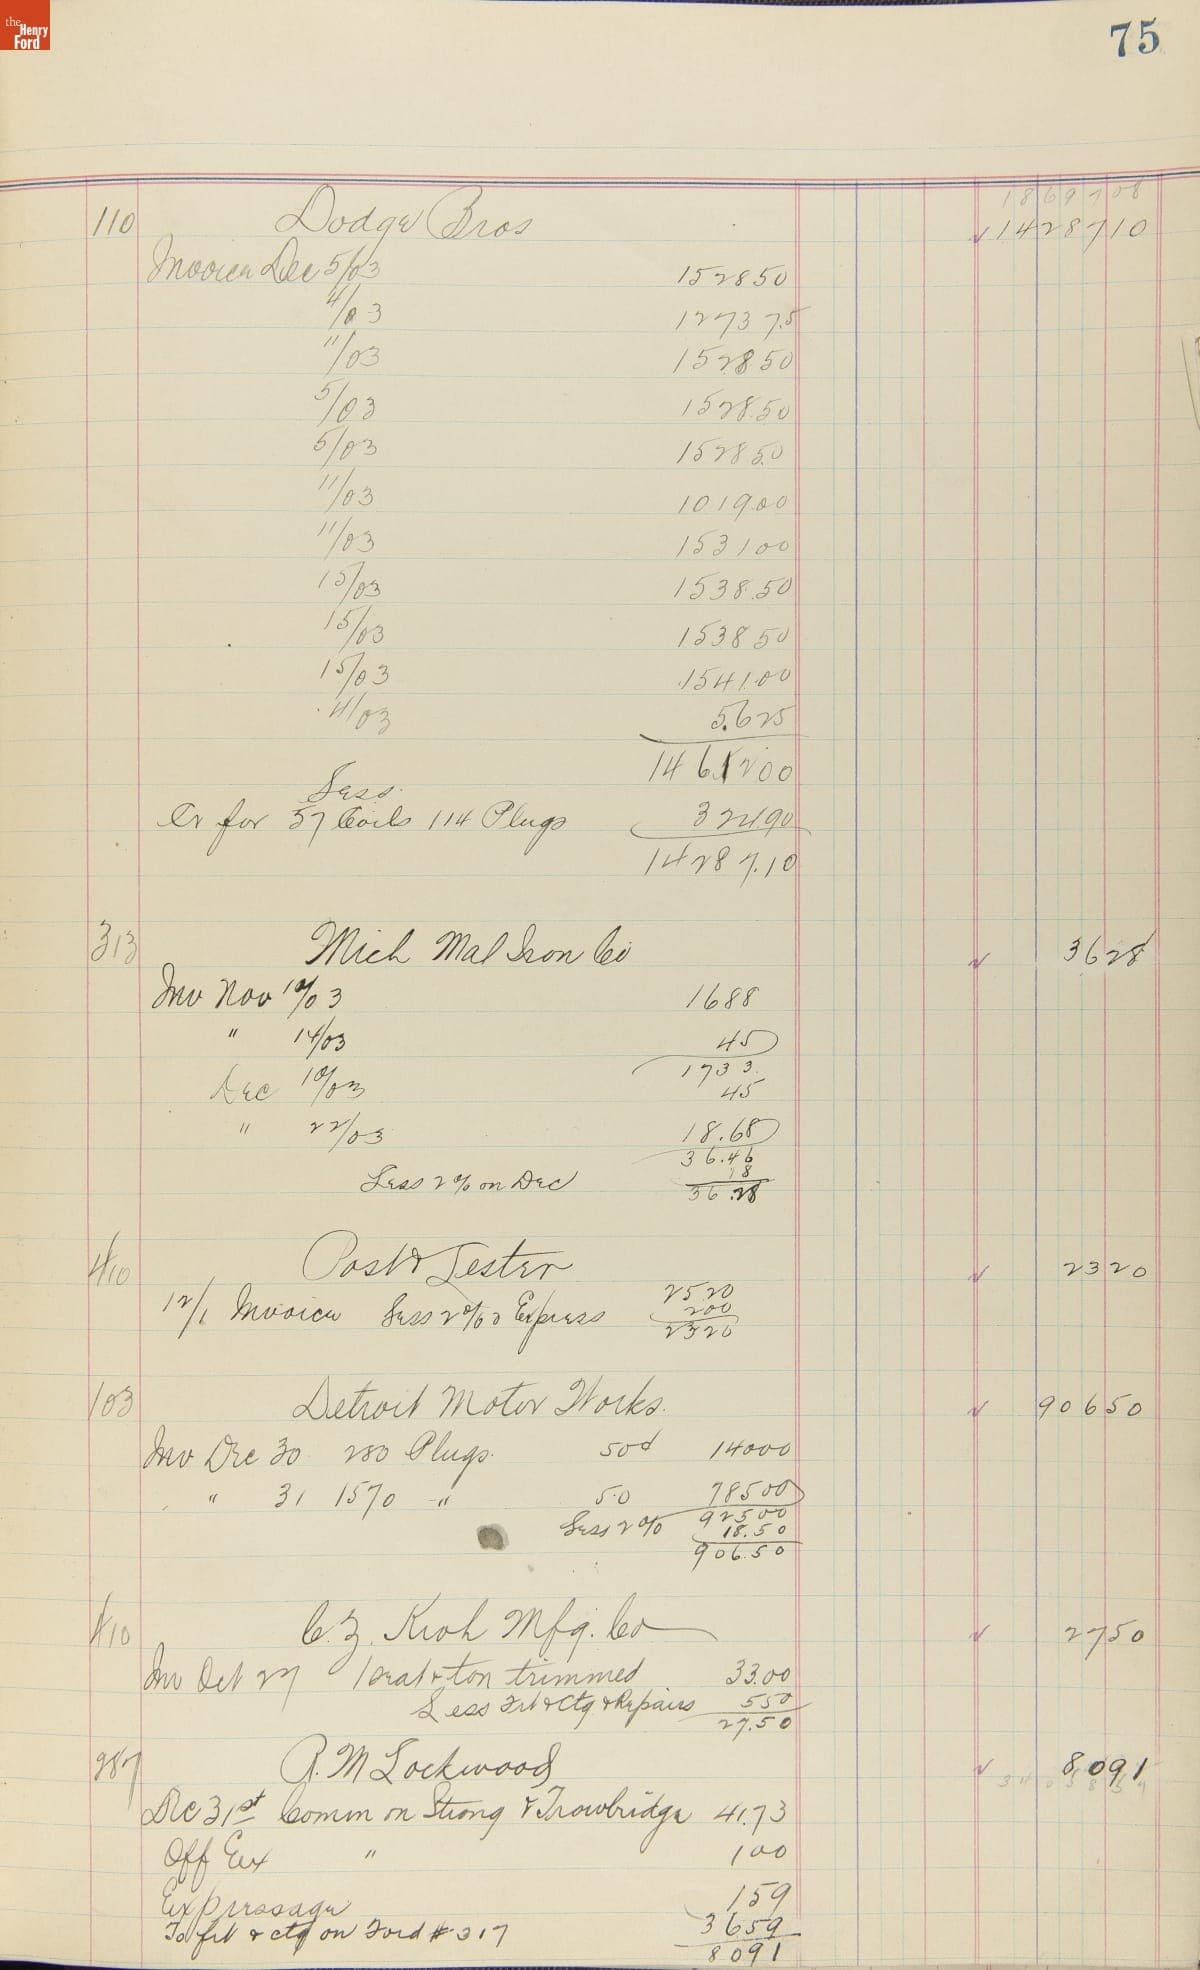 the Henry Ford
75
1869708
110 Dodge Bros 1428710
Invoice Dec 5/03 152850
4/03 127375
11/03 152850
5/03 1528.50
5/03 152850
11/03 101900
11/03 153100
15/03 1538.50
15/03 153850
15/03 154100
4/03 5625
1461200
Less
Cr for 57 Coils 114 Plugs 32490
14287.10
313 Mich Mal Iron Co 3628
Inv Nov 10/03 1688
" 14/03 45
1733
Dec 10/03 45
" 22/03 18.68
36.46
18
Less 2% on Dec 36.28
410 Post & Lester 2320
2520
12/1 Invoice Less 2% Express 200
2320
103 Detroit Motor Works 90650
Inv Dec 30 280 Plugs 50¢ 14000
" 31 1570 " 50 78500
92500
Less 2% 18.50
906.50
410 C. Z. Kroh Mfg. Co 2750
Inv Oct 27 1 seat & ton trimmed 33.00
Less Frt & Ctg & Repairs 550
27.50
287 R. M Lockwood 8091
Dec 31st Comm on Strong & Trowbridge 41.73
Off Ex " 100
Expressage 159
To frt & ctg on Ford # 317 3659
8091